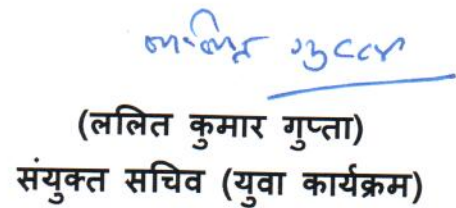 ललित गुप्ता
(ललित कुमार गुप्ता)
संयुक्त सचिव (युवा कार्यक्रम)